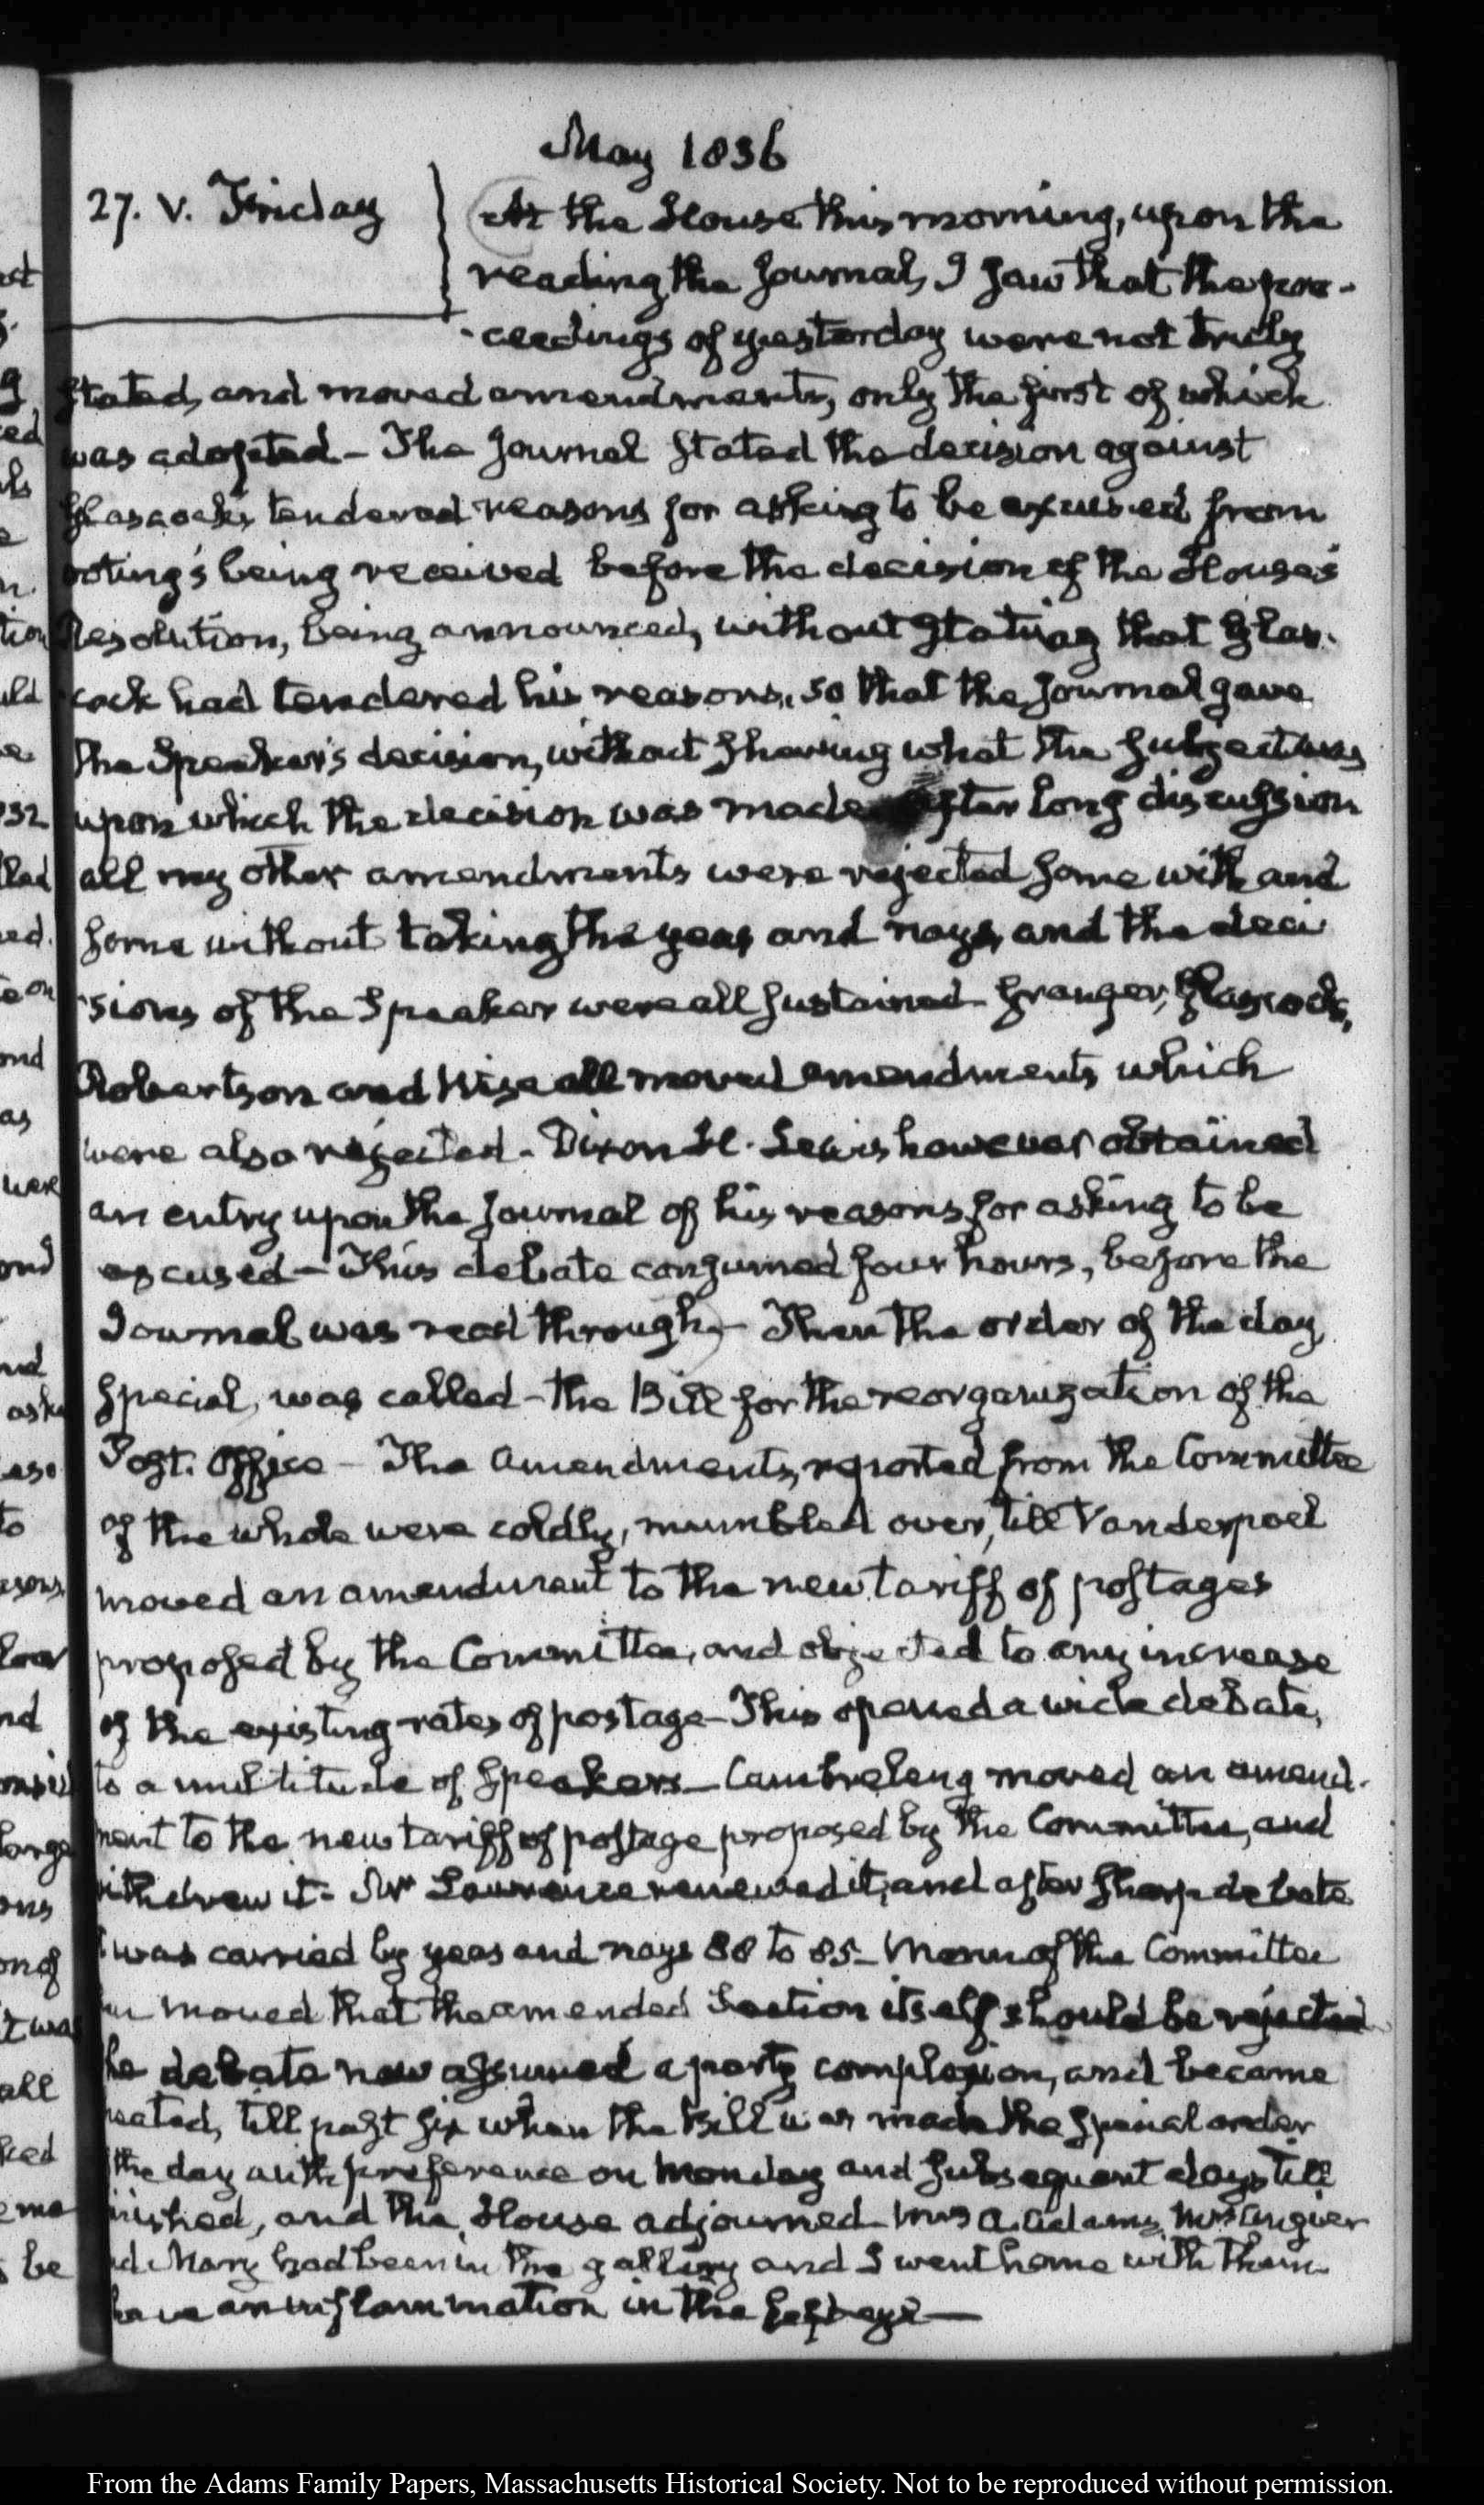 May 1836
27. V. Friday
At the House this morning, upon the
reading the Journal, I saw that the pro-
-ceedings of yesterday were not truly
stated, and moved amendments, only the first of which
was adopted – The Journal stated the decision against
Glascock's tendered reasons for asking to be excused from
voting's being received before the decision of the House's
Resolution, being announced, without stating that Glas-
cock had tendered his reasons, so that the Journal gave
the Speaker's decision, without shewing what the subject was
upon which the decision was made After long discussion
all my other amendments were rejected some with and
some without taking the yeas and nays, and the deci
-sions of the Speaker were all sustained – Granger, Glascock,
Robertson and Wise all moved amendments which
were also rejected – Dixon H. Lewis however obtained
an entry upon the Journal of his reasons for asking to be
excused – This debate consumed four hours, before the
Journal was read through – Then the order of the day
special, was called – the Bill for the reorganization of the
Post. Office – The Amendments, reported from the Committee
of the whole were coldly, mumbled over, till Vanderpoel
moved an amendment to the new tariff of postages
proposed by the Committee, and objected to any increase
of the existing rates of postage – This opened a wide debate,
to a multitude of speakers – Cambreleng moved an amend-
ment to the new tariff of postage proposed by the Committee, and
withdrew it – Mr Lawrence renewed it, and after sharp debate
it was carried by yeas and nays 88 to 85 – Mann of the Committee
moved that the amended Section itself should be rejected
he debate now assumed a party complexion, and became
heated, till past six when the Bill was made the special order
the day with preference on Monday and subsequent days till
finished, and the House adjourned – Mrs A. Adams, Mrs Angier
nd Mary had been in the gallery and I went home with them
have an inflammation in the left eye —
ond
as
were
to
all
be
From the Adams Family Papers, Massachusetts Historical Society. Not to be reproduced without permission.